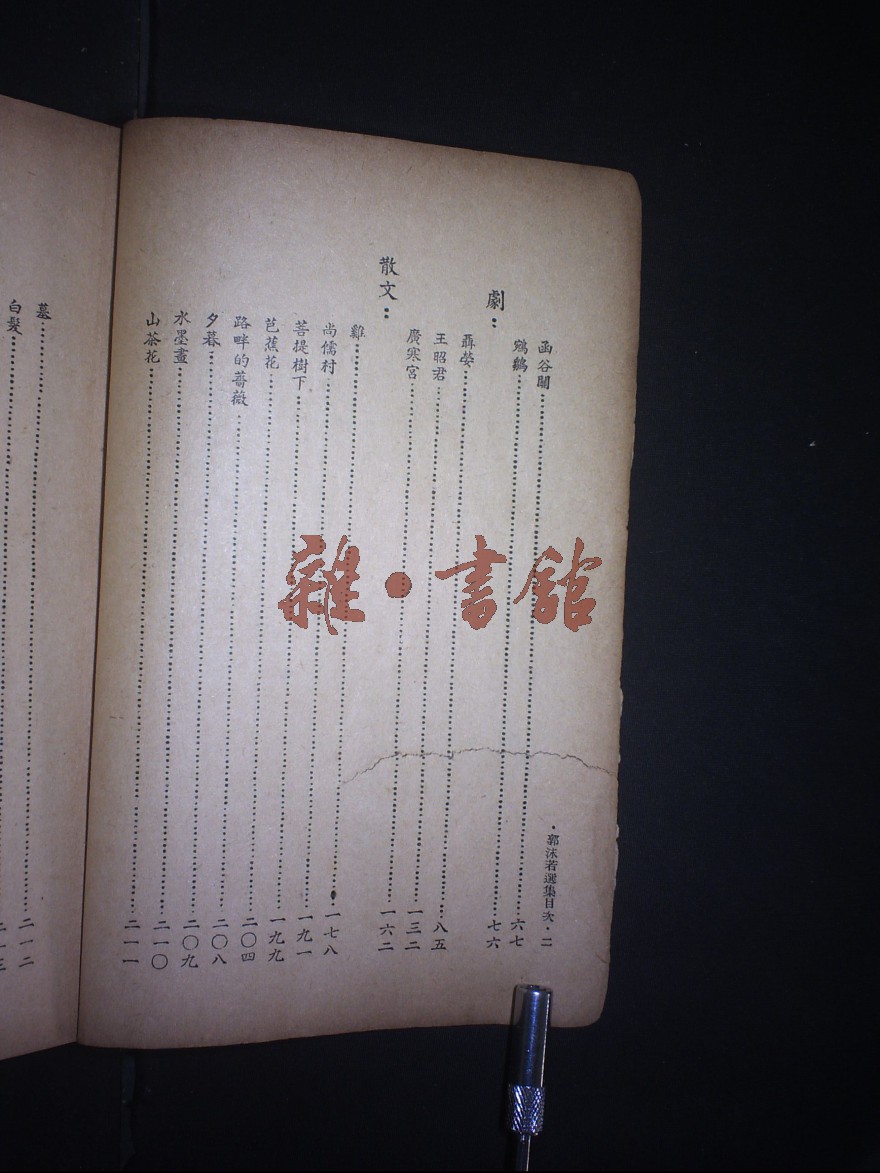 ・郭沫若選集目次・二
函谷關……六七
鵷鶵……七六
劇：
聶嫈……八五
王昭君……一三二
廣寒宮……一六二
散文：
雞……一七八
尚儒村……一九一
菩提樹下……一九九
芭蕉花……二〇四
路畔的薔薇……二〇八
夕暮……二〇九
水墨畫……二一〇
山茶花……二一一
墓……二一二
白髮……二一三
雜・書館